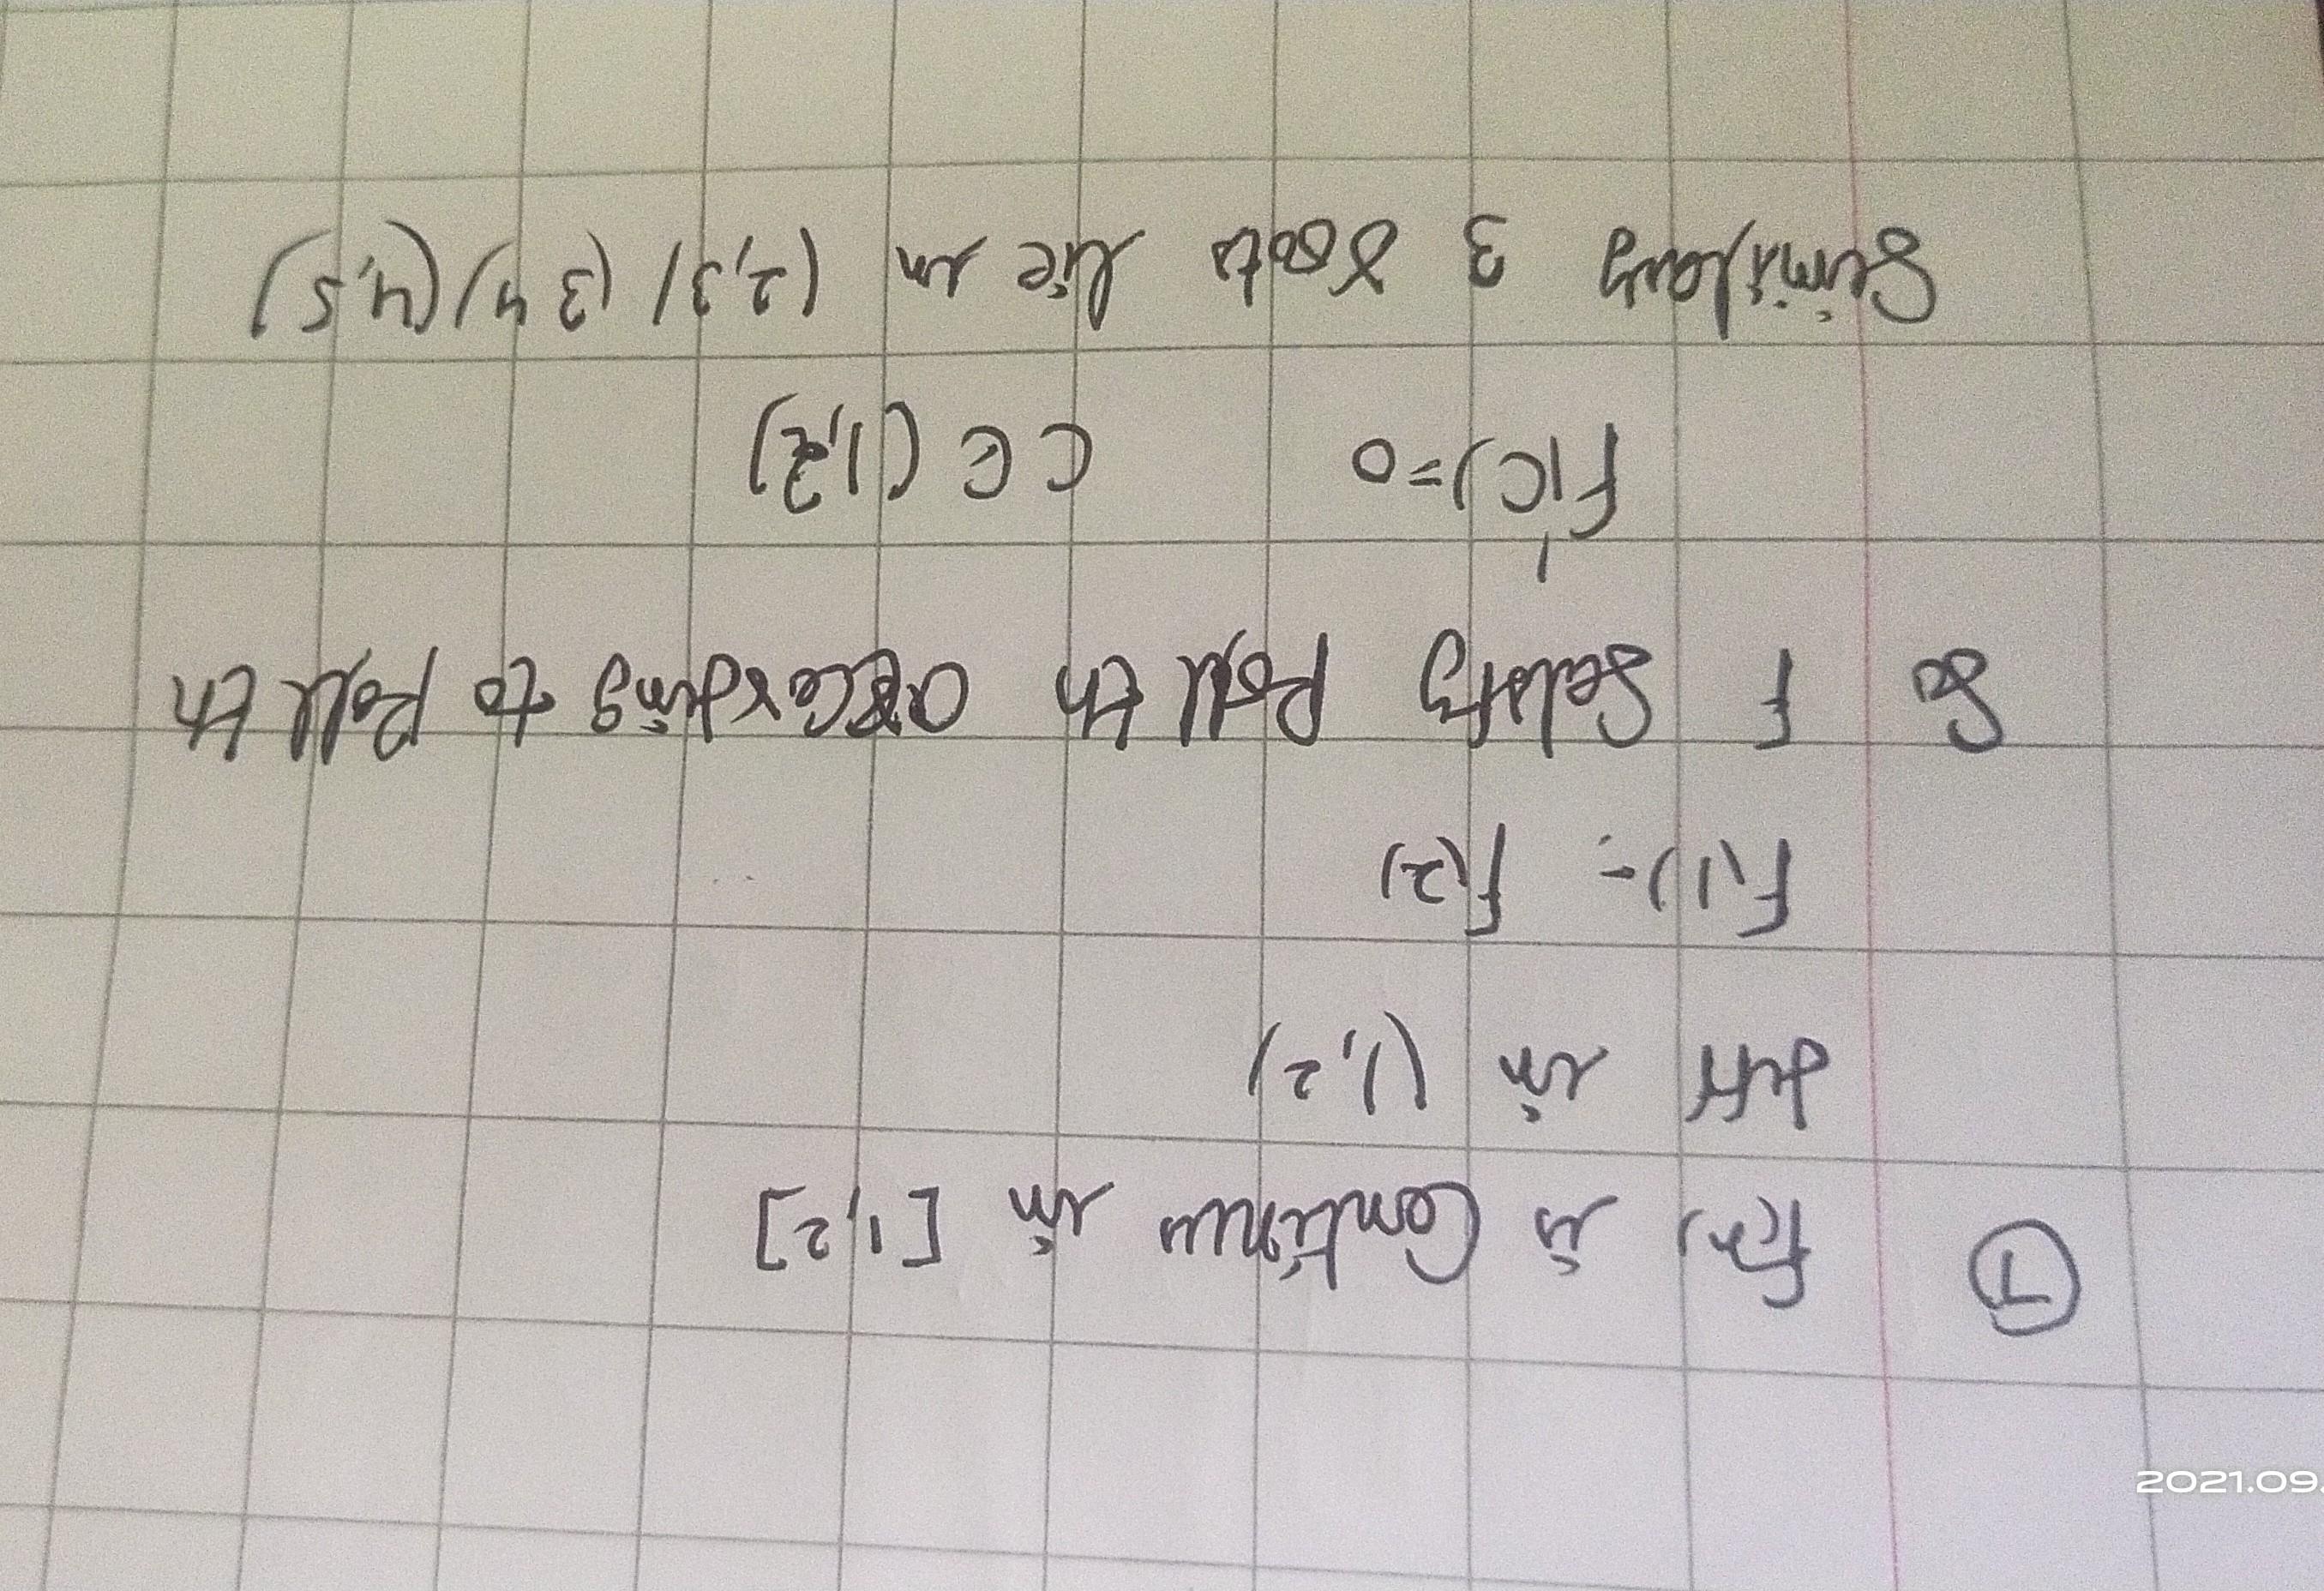 ① f(x) is Continuous in [1,2]
diff in (1,2)
f(1) = f(2)
So f satisfy Roll th according to Roll th
f'(c) = 0 c ∈ (1,2)
Similarly 3 roots lie in (2,3) (3 4) (4,5)
2021.09.